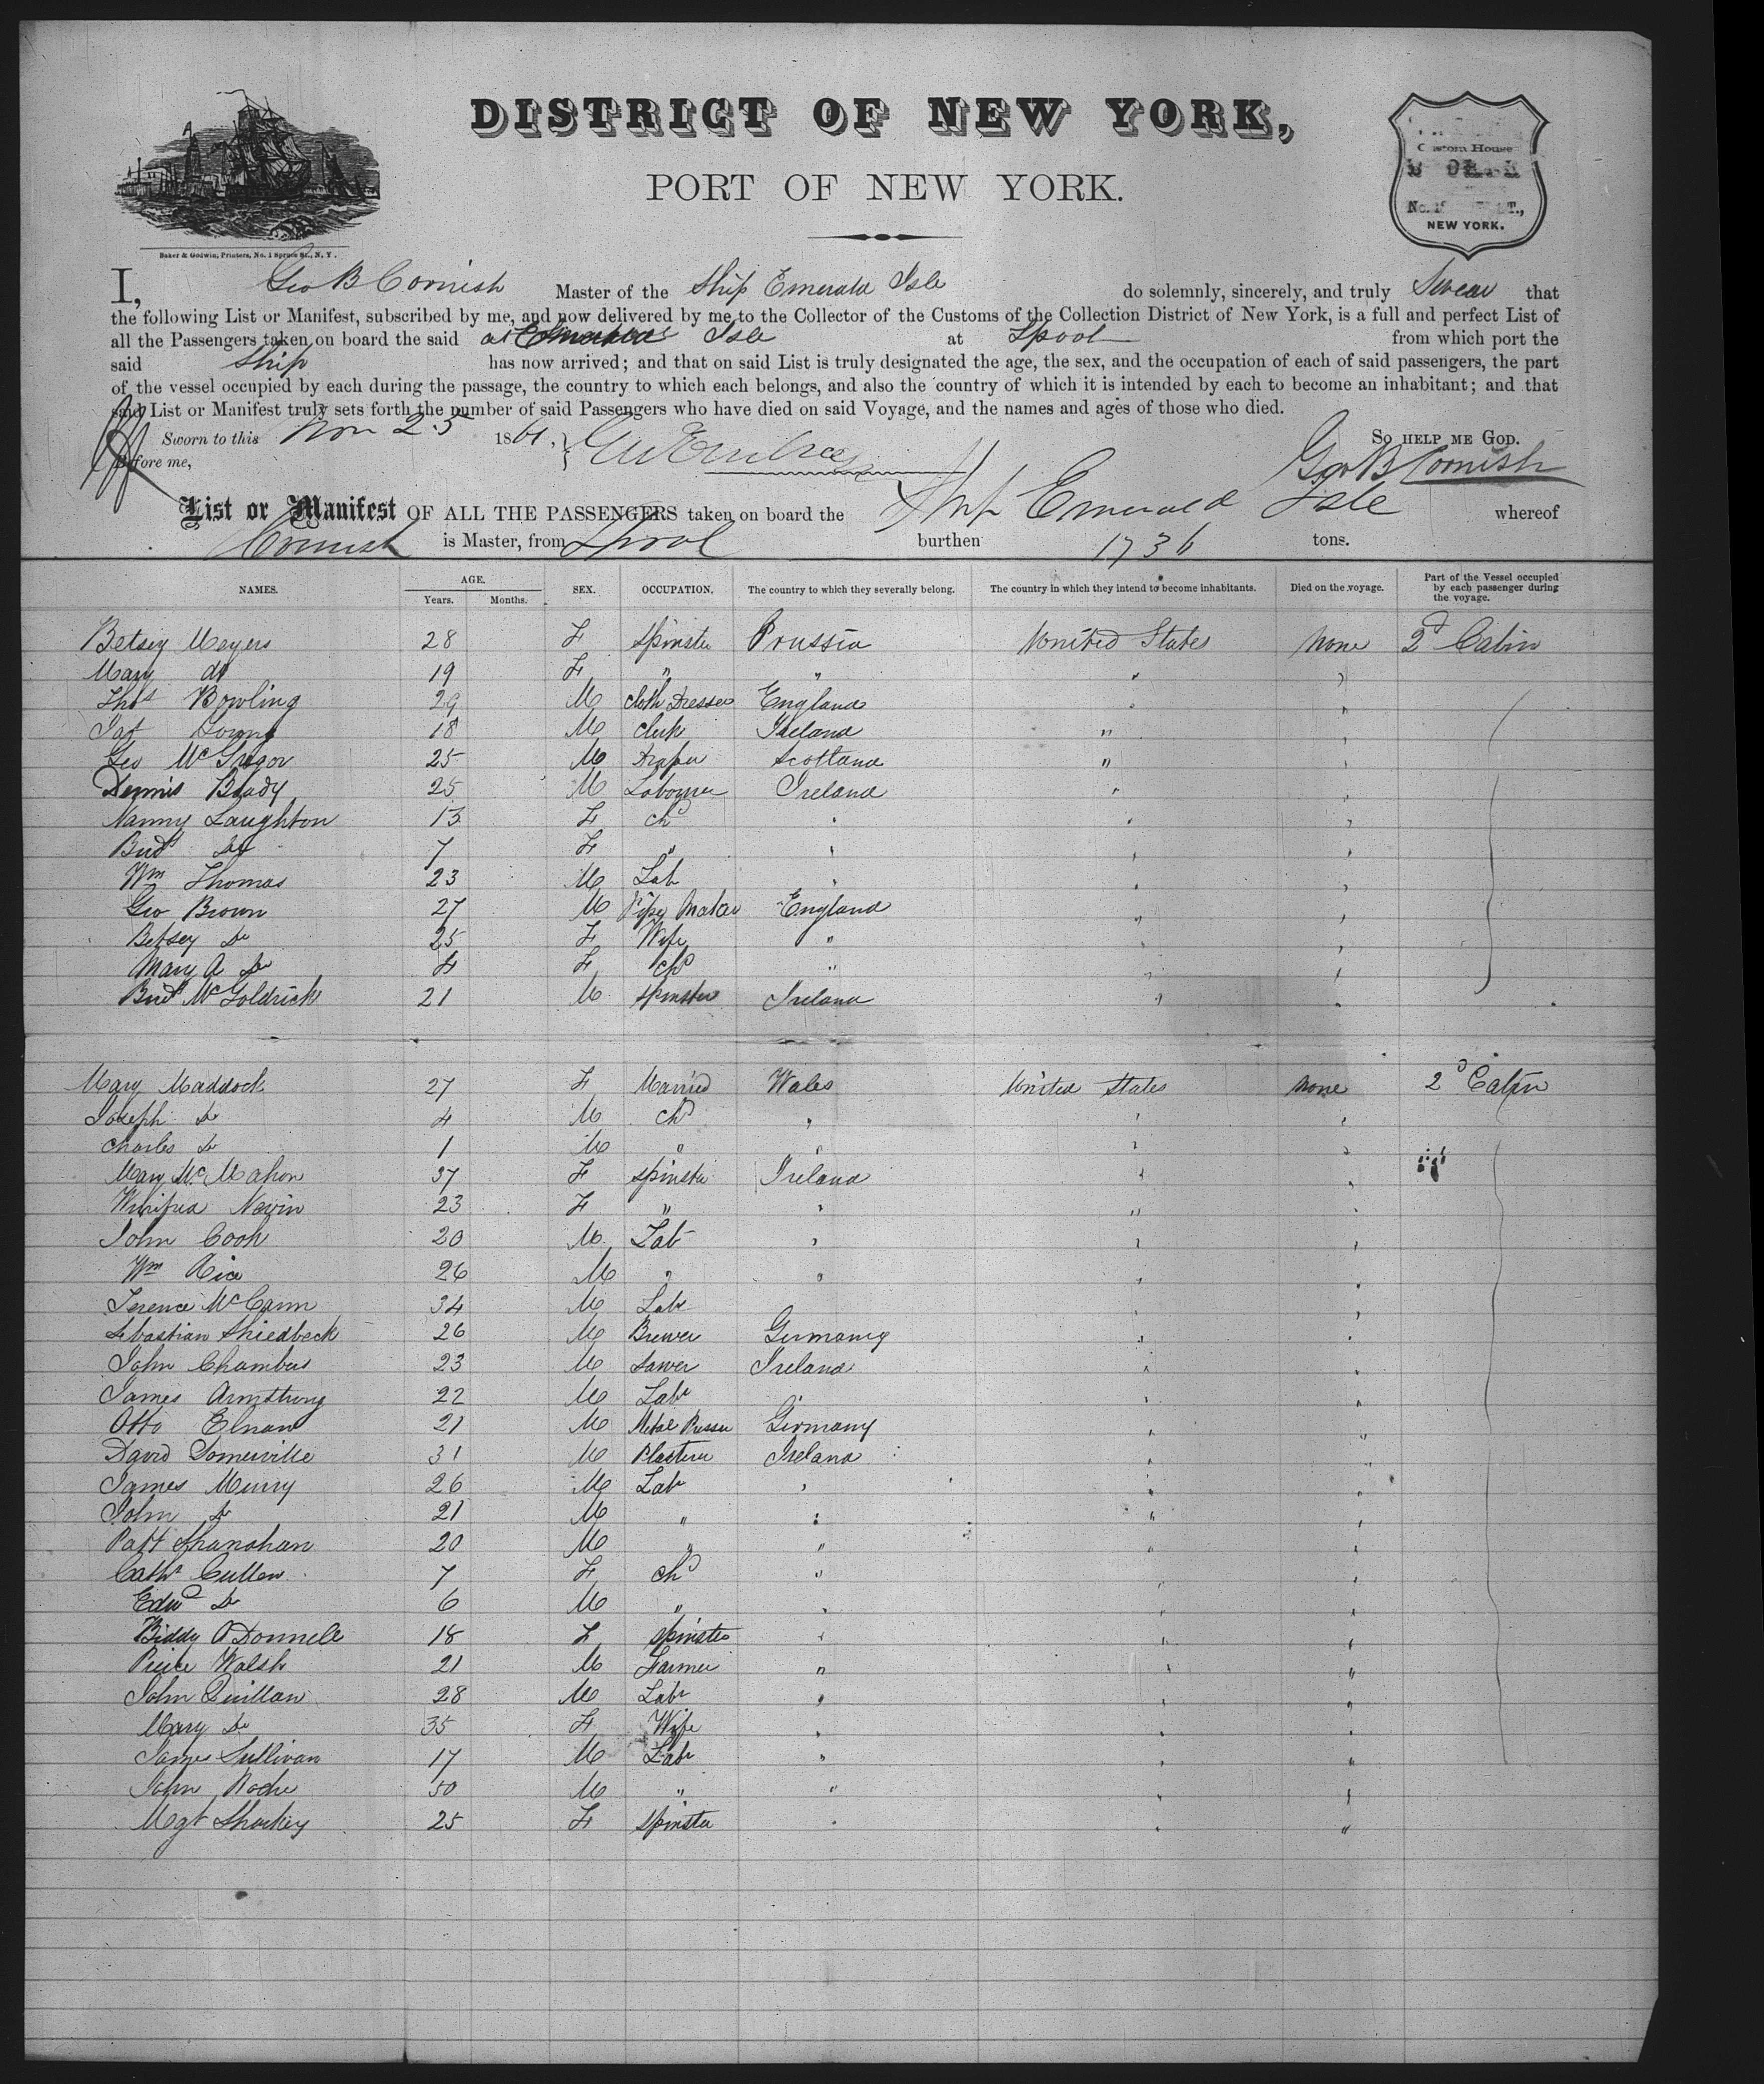 DISTRICT OF NEW YORK,
PORT OF NEW YORK.
Custom House
No.
NEW YORK.
Baker & Godwin, Printers, No. 1 Spruce St., N. Y.
I, Geo B Cornish Master of the Ship Emerald Isle do solemnly, sincerely, and truly Swear that
the following List or Manifest, subscribed by me, and now delivered by me to the Collector of the Customs of the Collection District of New York, is a full and perfect List of
all the Passengers taken on board the said Isle at Lpool from which port the
said Ship has now arrived; and that on said List is truly designated the age, the sex, and the occupation of each of said passengers, the part
of the vessel occupied by each during the passage, the country to which each belongs, and also the country of which it is intended by each to become an inhabitant; and that
said List or Manifest truly sets forth the number of said Passengers who have died on said Voyage, and the names and ages of those who died.
Sworn to this Nov 25 1861. So HELP ME GOD.
Before me, Geo B Cornish
List or Manifest OF ALL THE PASSENGERS taken on board the Ship Emerald Isle whereof
Cornish is Master, from Lpool burthen 1736 tons.
NAMES. AGE. Years. Months. SEX. OCCUPATION. The country to which they severally belong. The country in which they intend to become inhabitants. Died on the voyage. Part of the Vessel occupied by each passenger during the voyage.
Betsey Meyers 28 F Spinster Prussia United States None 2d Cabin
Mary do 19 F " " " "
Thos Bowling 29 M Cloth Dresser England " "
18 M Clerk Ireland " "
Geo McGregor 25 M Draper Scotland " "
Dennis Brady 25 M Labourer Ireland " "
Nanny Laughton 13 F chd " " "
Bridt Do 7 F " " " "
Wm Thomas 23 M Lab " " "
Geo Brown 27 M Pipe Maker England " "
Betsey Do 25 F Wife " " "
Mary A Do 4 F chd " " "
Bridt McGoldrick 21 M Spinster Ireland " "
Mary Maddock 27 F Married Wales United States None 2d Cabin
Joseph Do 4 M chd " " "
Charles Do 1 M " " " "
Mary McMahon 37 F Spinster Ireland " "
Winifred Nevin 23 F " " " "
John Cook 20 M Lab " " "
Wm Rice 26 M " " " "
Terence McCann 34 M Labr " "
Sebastian Shiedbeck 26 M Brewer Germany " "
John Chambers 23 M Sawer Ireland " "
James Armstrong 22 M Labr " "
Otto Elnaw 21 M Metal Presser Germany " "
David Somerville 31 M Plasterer Ireland " "
James Murry 26 M Labr " " "
John Do 21 M " " " "
Patt Shanahan 20 M " " " "
Cathr Cullen 7 F chd " " "
Edwd Do 6 M " " " "
Biddy O'Donnell 18 F Spinster " " "
Pierce Walsh 21 M Farmer " " "
John Quillan 28 M Labr " " "
Mary Do 35 F Wife " " "
James Sullivan 17 M Labr " " "
John Roche 50 M " " " "
Mgt Sharkey 25 F Spinster " " "